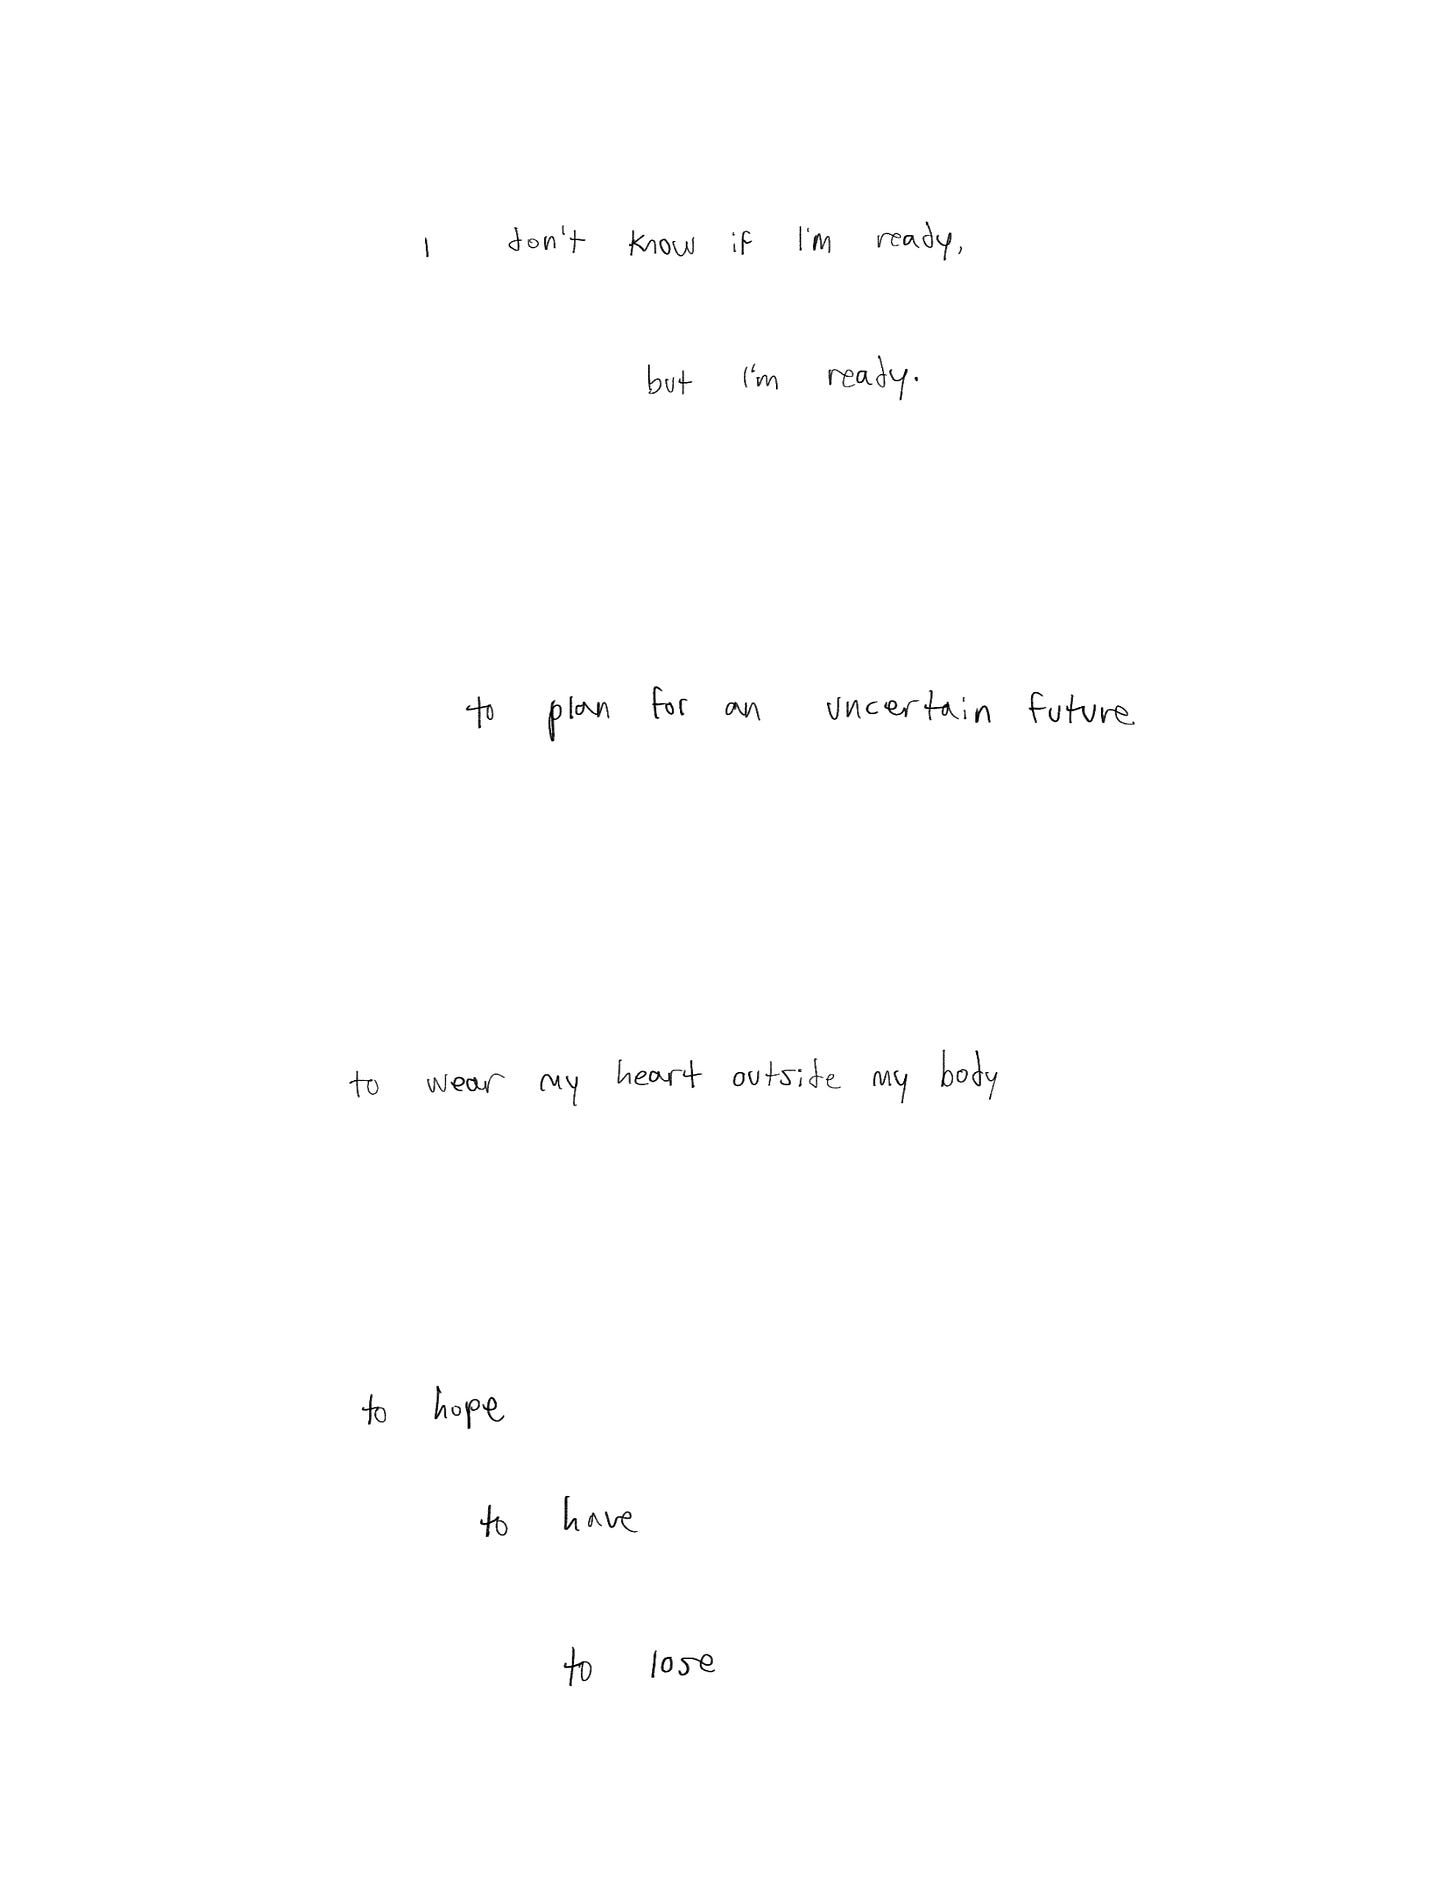 I don't know if I'm ready,
but I'm ready.
to plan for an uncertain future
to wear my heart outside my body
to hope
to have
to lose